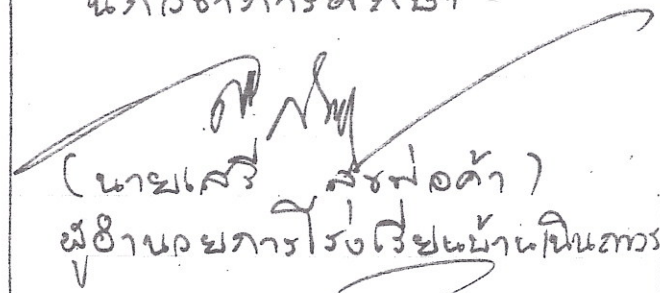 นักวิชาการศึกษา
(นายเสรี สุขพ่อค้า)
ผู้อำนวยการโรงเรียนบ้านเนินถาวร